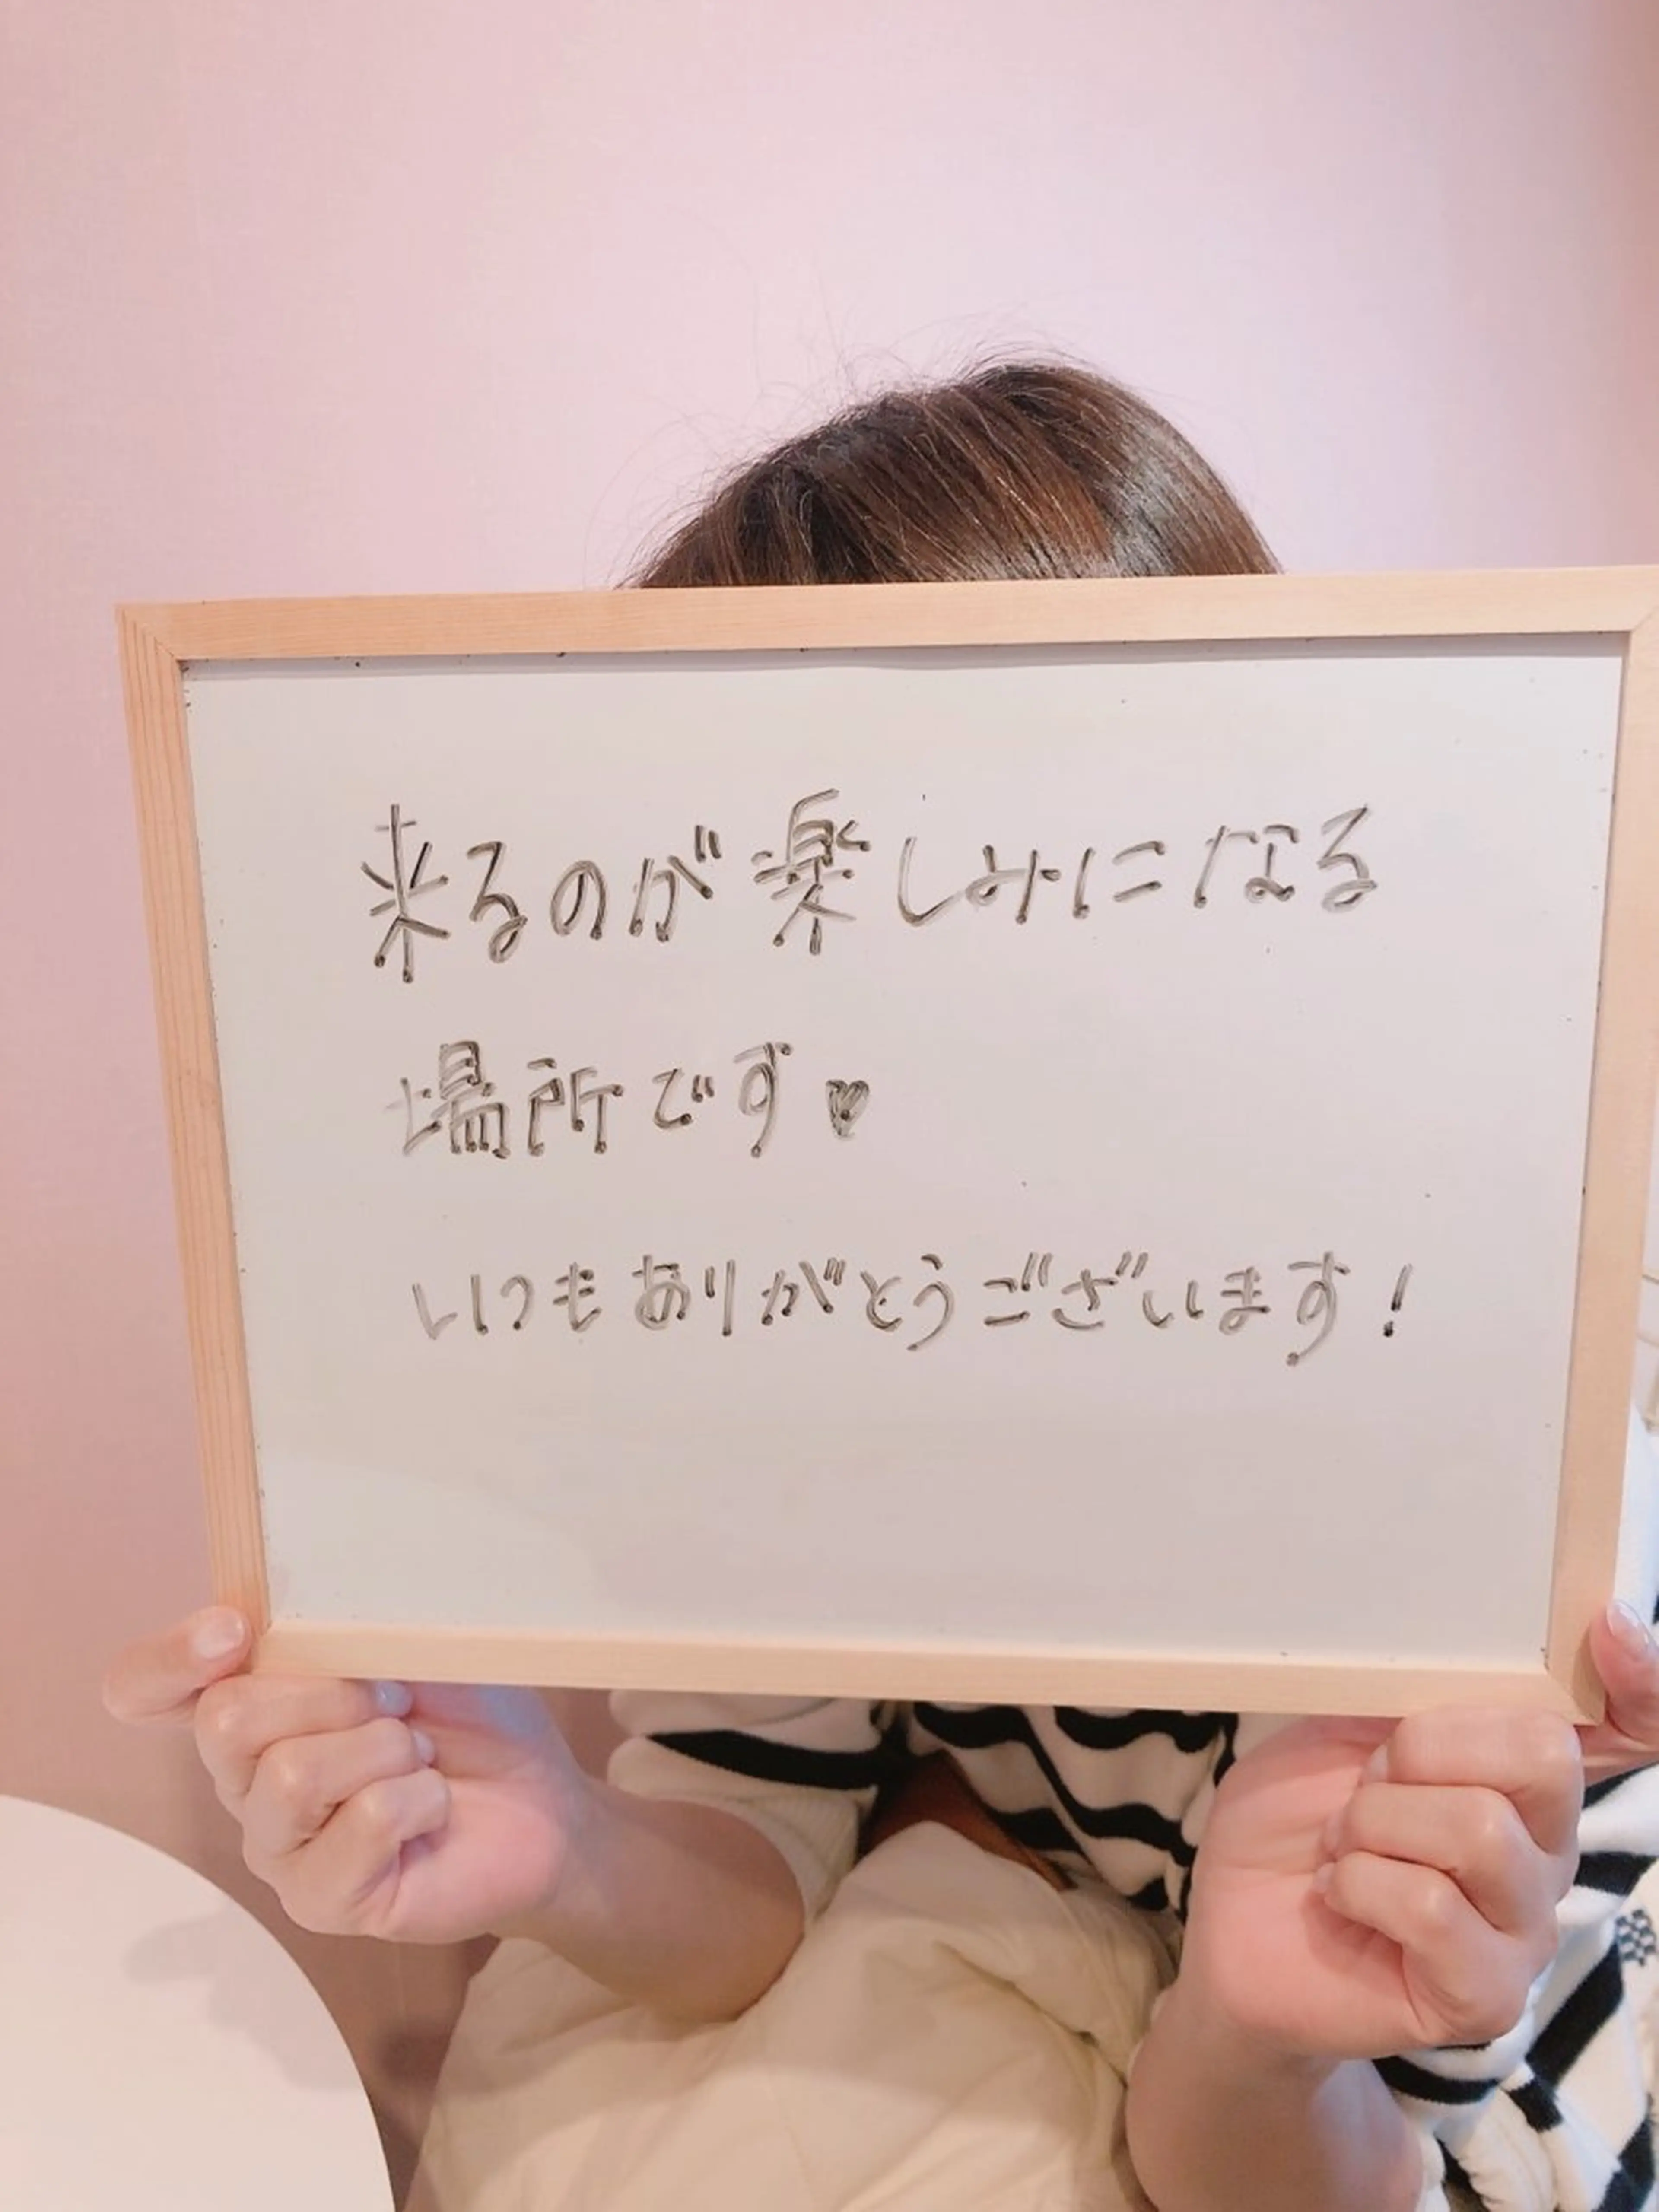 来るのが楽しみになる
場所です♥
いつもありがとうございます!